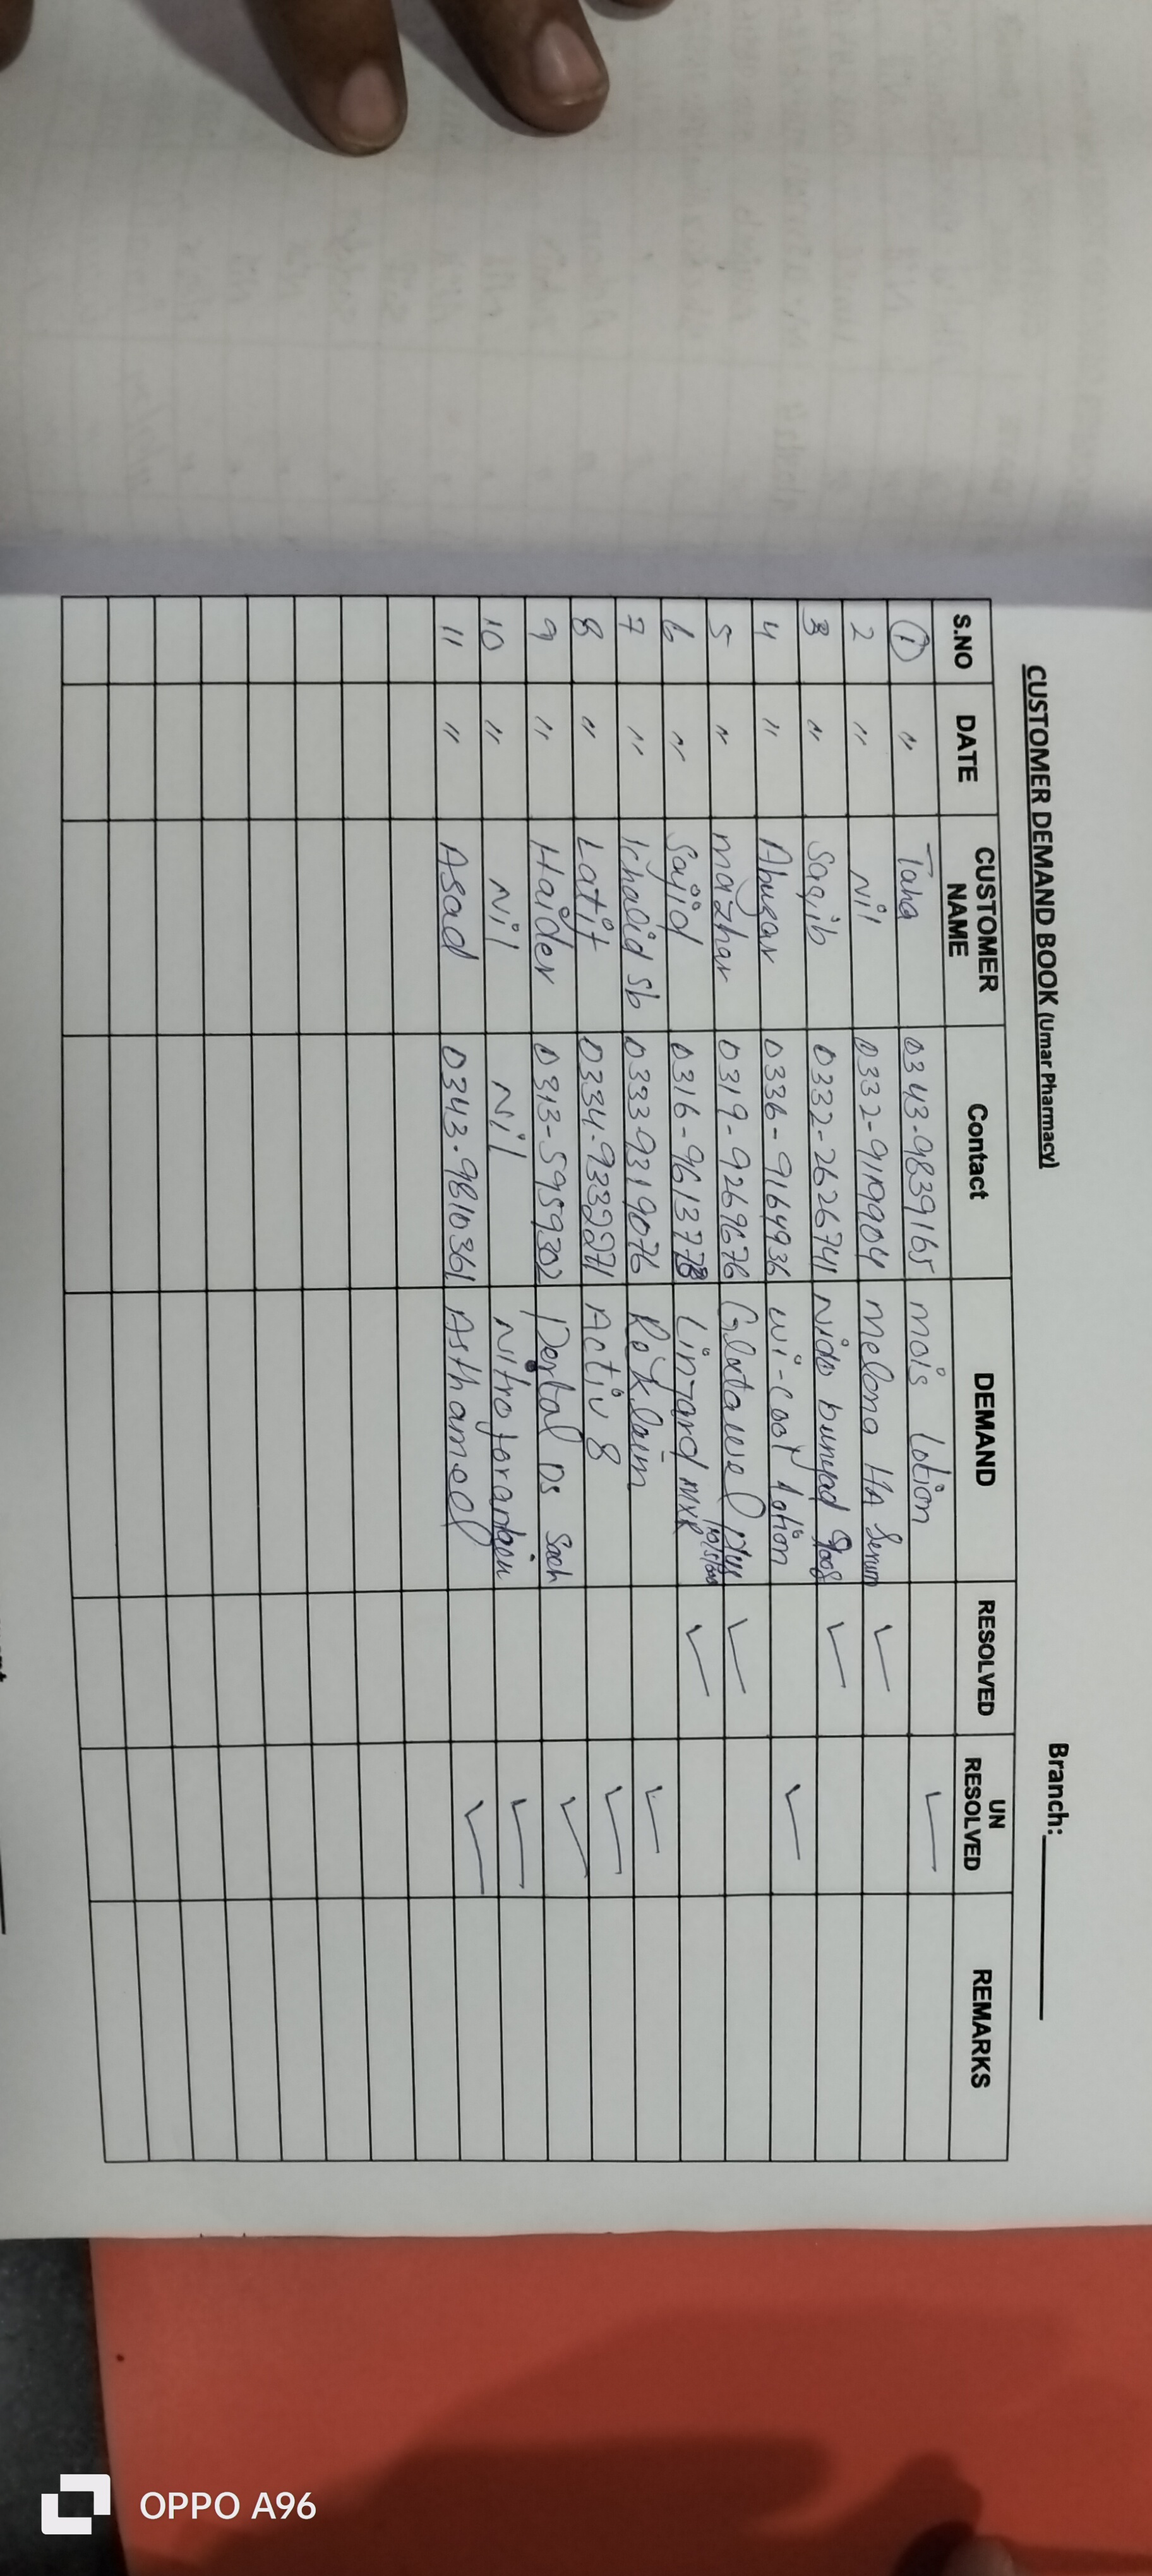 CUSTOMER DEMAND BOOK (Umar Pharmacy) Branch:
S.NO DATE CUSTOMER NAME Contact DEMAND RESOLVED UN RESOLVED REMARKS
1 " Taha 0343-9839165 mois lotion ✓
2 " Nil 0332-9119904 melona HA Serum ✓
3 " Saqib 0332-2626741 Nido bunyad ✓
4 " Abuzar 0336-9164936 wi-cool lotion ✓
5 " mazhar 0319-9269676 Glutawel plus ✓
6 " Sajid 0316-9613778 ✓
7 " Khalid Sb 0333-9319076 Roxlaim ✓
8 " Latif 0334-9332271 Activ 8 ✓
9 " Haider 0313-5959302 DS Sach ✓
10 " Nil Nil ✓
11 " Asad 0343-9810361 Asthamed ✓
OPPO A96